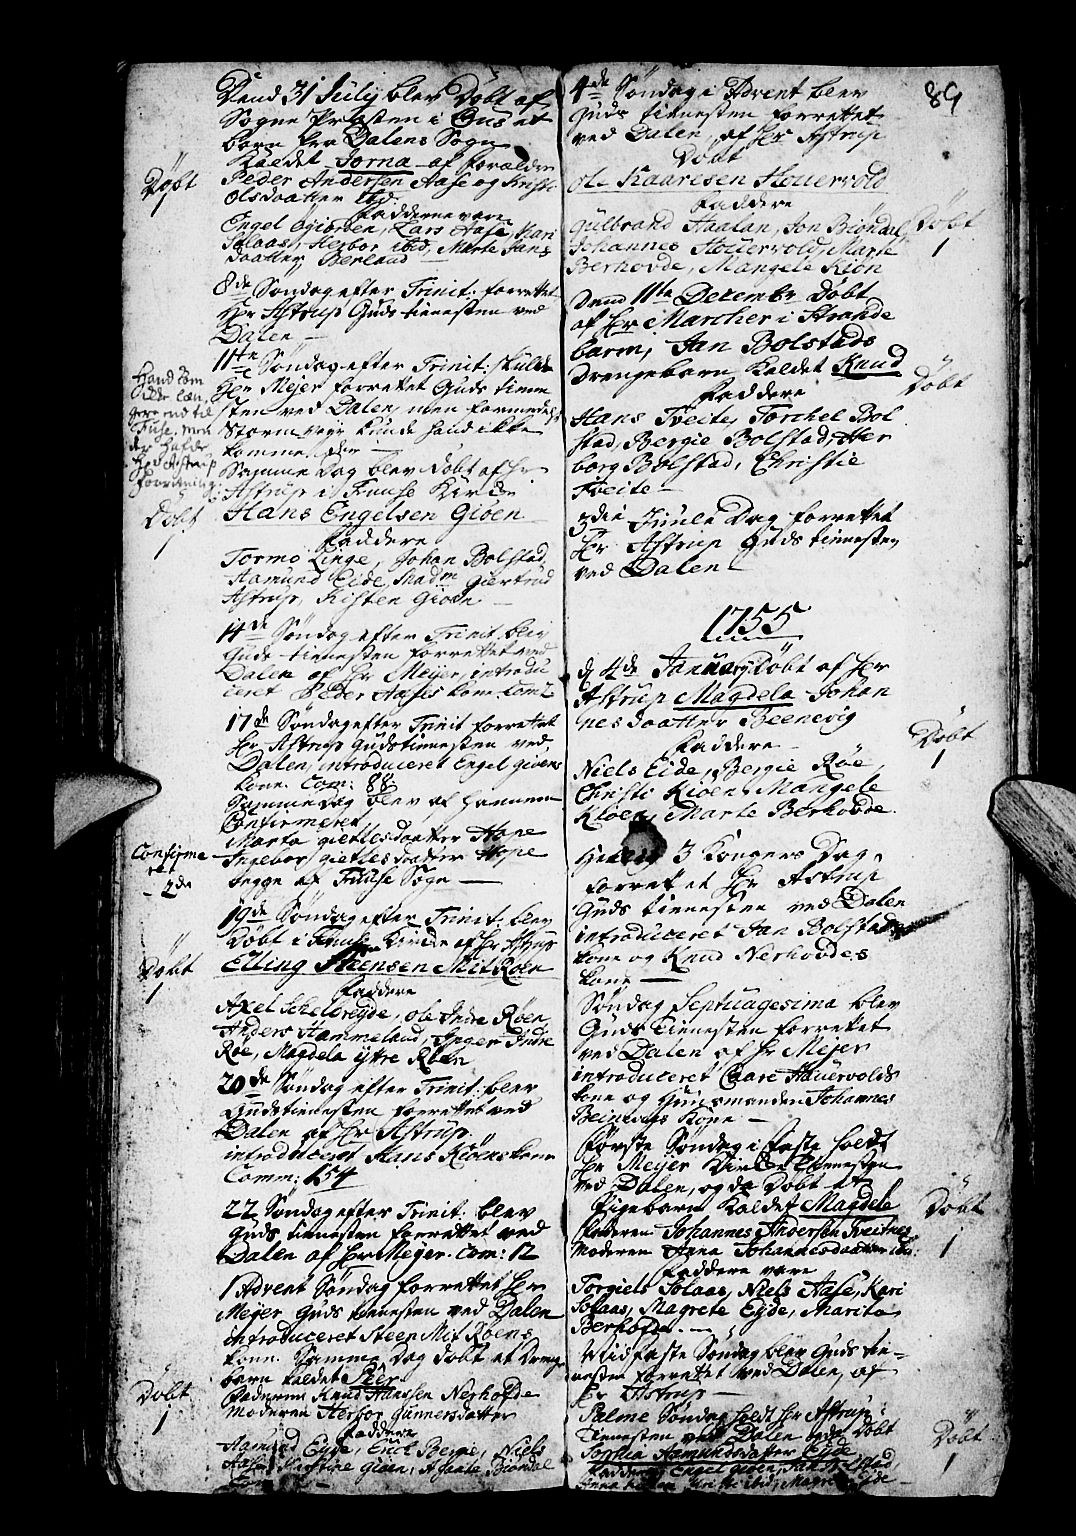 89
Dend 31 July blev Døbt af
Sogne Præsten i Huus et
barn fra Dalens Sogn
Kaldet Jorna af forældre
Peder Andersen Aase og Kristi
Olsdaatter ibid.
Faddere vare
Døbt
1
Lars Aase, Kari
Solaas, Herbor ibid, Marte Jans
daatter Berland
8de Søndag efter Trinit: forrettet
Hr Astrup Guds tienesten ved
Dalen
11te Søndag efter Trinit: skulde
Hr Mejer forrettet Guds tienne
sten ved Dalen, men formedelst
Storm vejr kunde hand ikke
komme
Samme Dag blev Døbt af Hr
Astrup i Fuuse Kirke
Hans Engelsen Gioen
Faddere
Tormo Linge, Johan Bolstad
Aamund Eide, Madm Giertrud
Astrup, Kisten Gioen
Hand kom
ikke læn
gere end til
Fuse, men
Hr Astrup
Døbt
1
14de Søndag efter Trinit. blev
Guds tienesten forrettet ved
Dalen af Hr Meijer, introdu
ceret Peder Aases kone Com:
17de Søndag efter Trinit forrettet
Hr Astrup Gudstienesten ved
Dalen, introduceret Engel Gioens
kone. Com: 88
Samme Dag blev af hannem
Confirmeret
Marta gietlesdaatter Hope
Ingebor gietlesdaatter Hope
begge af Fuuse Sogn
Confirme
ret
2de
19de Søndag efter Trinit: blev
Døbt i Fuuse Kirke af Hr Astrup
Elling Steensen Mit Røen
Faddere
Axel Scheldregde, ole Indre Røen
Anders Hammeland, Inger Indre
Røe, Magdela ytre Røen
Døbt
1
20de Søndag efter Trinit: blev
Gudstienesten forrettet ved
Dalen af Hr Astrup.
introduceret Hans Kiøens kone
Comm: 154
22 Søndag efter Trinit: blev
Guds tienesten forrettet ved
Dalen af Hr Meyer. Com: 12
1 Advent Søndag forrettet Hr
Mejer Guds tienesten ved Dalen
introduceret Steen Mit Røens
kone. Samme Dag døbt et Drenge
barn kaldet Peer
Faderen Knud Hansen Nerhofde
Moderen Herbor Gunnersdatter
Faddere
Aamund Eyde, Bergie, Niels
Aase, Kirstine Gioen, Agaate Biondal
Døbt
1
4de Søndag i Advent blev
Guds tienesten forrettet
ved Dalen, af Hr Astrup
Døbt
Ole Kaaresen Houervold
Faddere
Gulbrand Haalan, Jon Biøndal
Johannes Houervold, Marte
Berhovde, Mangele Kiøn
Døbt
1
Dend 11te Decembr Døbt
af Hr Marcher i Strande
barm, Jan Bolstads
Drengebarn kaldet Knud
Faddere
Hans Tveite, Torchel Bol
stad, Bergie Bolstad, Her
borg Bolstad, Christie
Tveite
Døbt
3die Juule Dag forrettet
Hr Astrup Guds tienesten
ved Dalen
1755
d 4de January døbt af Hr
Astrup Magdela Johan
nesdaatter Beenevig
Faddere
Niels Eide, Bergie Røe,
Christi Kioen, Mangele
Kioen, Marte Berhovde.
Døbt
1
3 Konger Dag
forrettet Hr Astrup
Guds tienesten ved Dalen
introduceret Jan Bolstads
kone og Knud Nerhovdes
kone
Søndag Septuagesima blev
Guds tienesten forrettet
ved Dalen af Hr Mejer
introduceret Caare Hauervolds
kone og Huusmanden Johannes
Beinevigs Kone
Første Søndag i Faste holdt
Hr Meyer Kirke tienesten
ved Dalen, og da Døbt et
Pigebarn kaldet Magdele
Faderen Johannes Andersen Tveitnes
Moderen Anna Johannesdaatter ibid:
Faddere vare
Torgiels Solaas, Niels Aase, Kari
Solaas, Magrete Eyde, Marita
Berhofde.
Døbt
1
Midfaste Søndag blev Guds tie-
nesten forrettet ved Dalen, af
Hr Astrup
Palme Søndag holdt Hr Astrup
Tienesten ved Dalen og døbt
Sophia Aamundsdatter Eyde
Faddere Engel Gioen, Jan Bolstad,
ibid, Magrete Eyde
Døbt
1